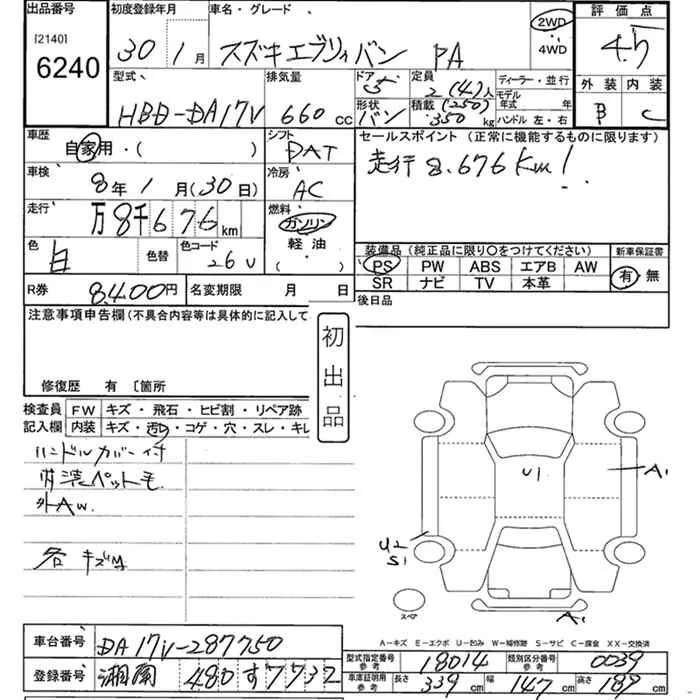 出品番号 初度登録年月 車名・グレード 評価点
[2140] 30年 1月 スズキ エブリィ バン PA 2WD 4WD 4.5
6240 外装 内装
型式 排気量 ドア 定員 ディーラー・並行 B C
HBD-DA17V 660cc 5 2(4)人 モデル年式 年
形状 積載
バン (250) 350kg ハンドル 左・右
車歴 自家用・( ) シフト セールスポイント (正常に機能するものに限ります)
DAT 走行 8.676Km!
車検 8年 1月(30日) 冷房
AC
走行 万8千676km 燃料
ガソリン
色 白 色替 色コード 26U 軽油 ( )
装備品(純正品に限り○をつけてください) 新車保証書
PS PW ABS エアB AW 有・無
SR ナビ TV 本革
R券 8,400円 名変期限 月 日 後日品
注意事項申告欄(不具合内容等は具体的に記入して
初出品
修復歴 有 〔箇所
検査員記入欄 FW キズ・飛石・ヒビ割・リペア跡
内装 キズ・汚・コゲ・穴・スレ・キレ
ハンドルカバー付
内装ペット毛
外AW.
各キズ
U1 A1
U2
S1
スペア A1
A-キズ E-エクボ U-凹み W-補修跡 S-サビ C-腐食 XX-交換済
車台番号 DA17V-287750
型式指定番号 参考 18014 類別区分番号 参考 0039
登録番号 湘南 480 す 7732
車庫証明用 参考 長さ 339cm 幅 147cm 高さ 189cm